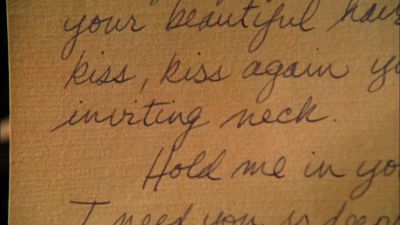 your beautiful hair
kiss, kiss again
inviting neck.
Hold me in
I need you